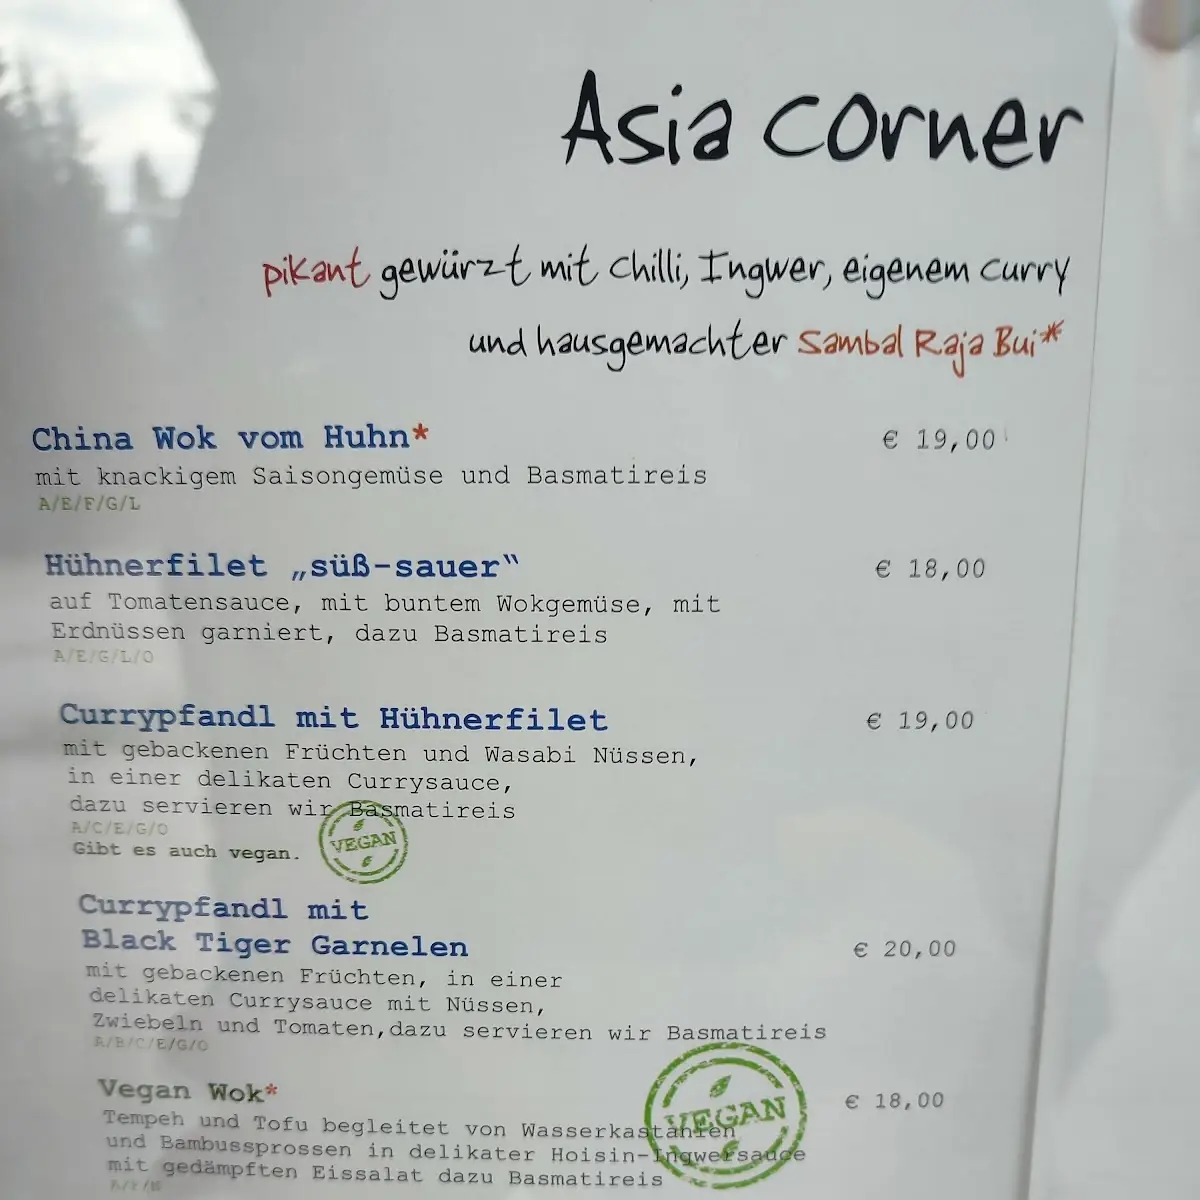 Asia corner
pikant gewürzt mit chilli, Ingwer, eigenem curry
und hausgemachter Sambal Raja Bui*
China Wok vom Huhn* € 19,00
mit knackigem Saisongemüse und Basmatireis
A/E/F/G/L
Hühnerfilet „süß-sauer“ € 18,00
auf Tomatensauce, mit buntem Wokgemüse, mit
Erdnüssen garniert, dazu Basmatireis
A/E/G/L/O
Currypfandl mit Hühnerfilet € 19,00
mit gebackenen Früchten und Wasabi Nüssen,
in einer delikaten Currysauce,
dazu servieren wir Basmatireis
A/C/E/G/O
Gibt es auch vegan.
VEGAN
Currypfandl mit
Black Tiger Garnelen € 20,00
mit gebackenen Früchten, in einer
delikaten Currysauce mit Nüssen,
Zwiebeln und Tomaten,dazu servieren wir Basmatireis
A/B/C/E/G/O
Vegan Wok* € 18,00
VEGAN
Tempeh und Tofu begleitet von Wasserkastanien
und Bambussprossen in delikater Hoisin-Ingwersauce
mit gedämpften Eissalat dazu Basmatireis